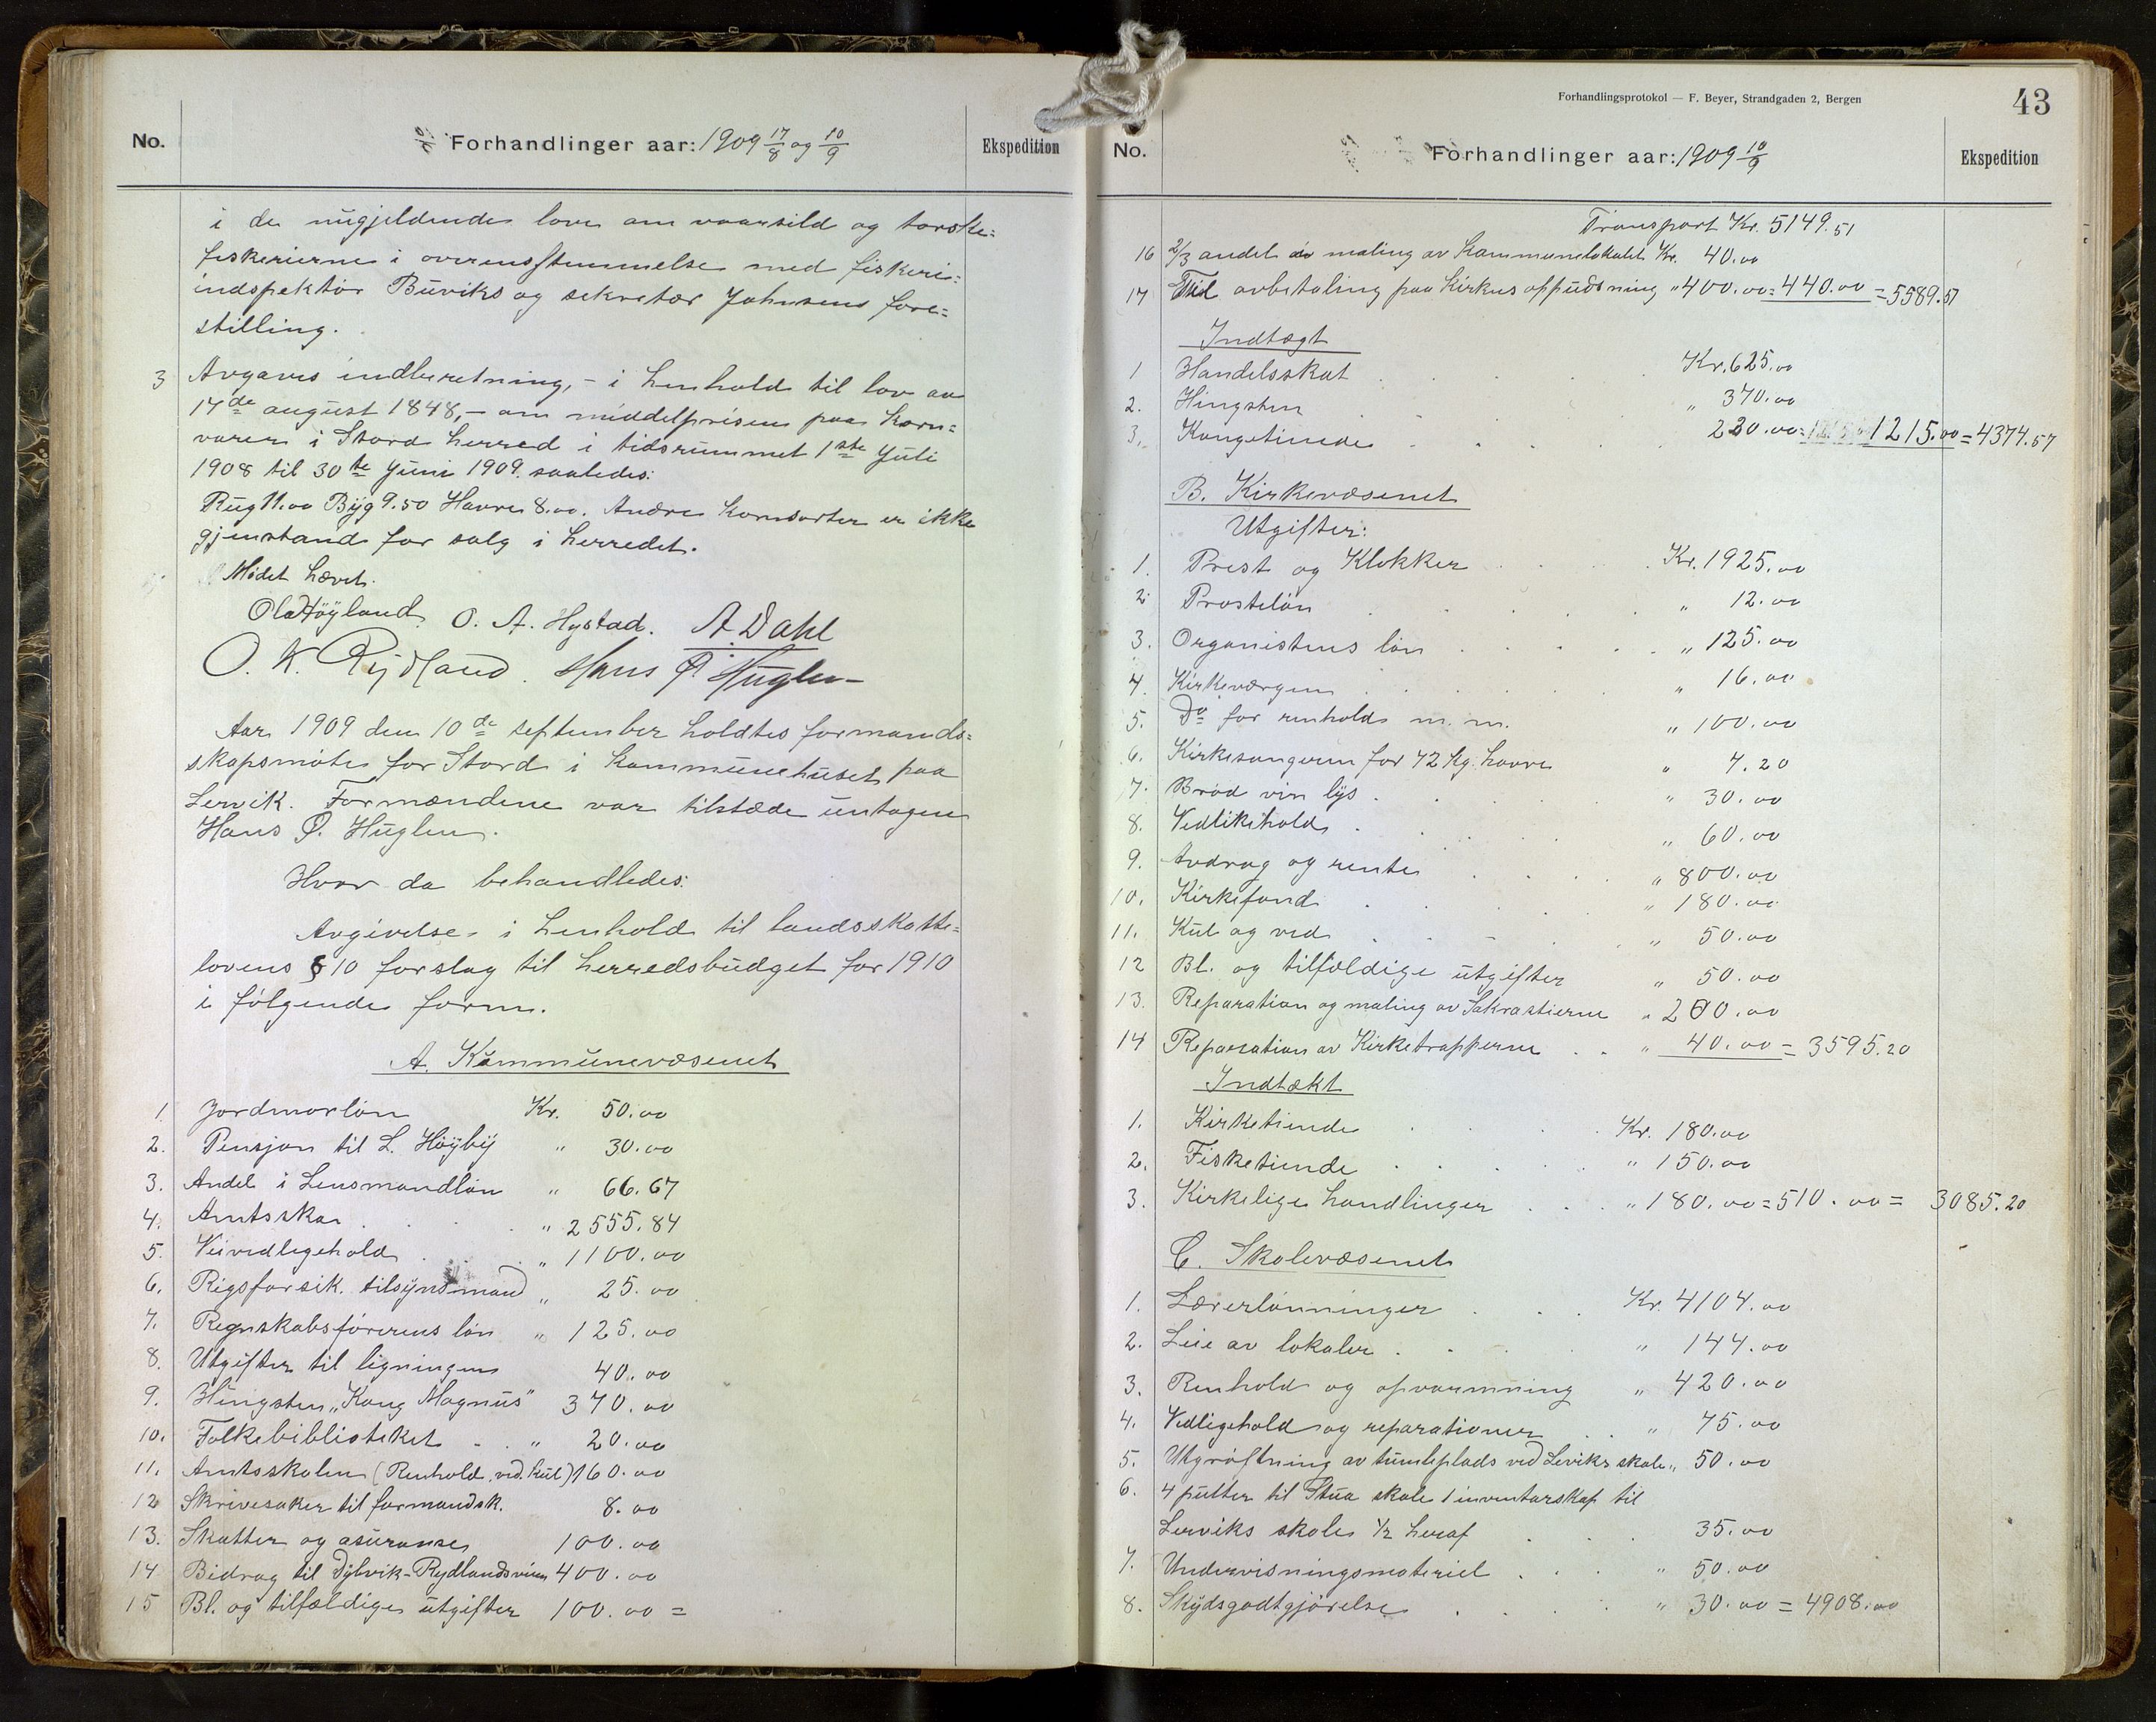 No.
Forhandlinger aar: 1909 17/8 og 10/9
Ekspedition
i de nugjeldende love om vaarsild og torske=
fiskerierne i overensstemmelse med fiskeri=
indspektør Buviks og sekretær Johnsens fore=
stilling.
3 Avgaves indberetning, - i henhold til lov av
17de august 1848, - om middelprisen paa korn=
varer i Stord herred i tidsrummet 1ste Juli
1908 til 30te Juni 1909 saaledes:
Rug 11.00 Byg 9.50 Havre 8.00. Andre kornsorter er ikke
gjenstand for salg i herredet.
Mødet hævet.
Ola Høyland O. A. Hystad. A. Dahl
O. K. Rydland. Hans P. Huglen
Aar 1909 den 10de september holdtes formands=
skapsmøte for Stord i kommunehuset paa
Lervik. Formændene var tilstæde untagen
Hans P. Huglen.
Hvor da behandledes:
Avgivelse i henhold til landsskatte=
lovens § 10 forslag til herredsbudget for 1910
i følgende form.
A. Kommunevæsenet
1. Jordmorløn Kr. 50.00
2. Pensjon til L. Høyby " 30.00
3. Andel i Lensmandløn " 66.67
4. Amtsskat " 2555.84
5. Veivedligehold " 1100.00
6. Rigsforsik. tilsynsmand " 25.00
7. Regnskabsførerens løn " 125.00
8. Utgifter til ligningen 40.00
9. Hingsten "Kong Magnus" 370.00
10. Folkebiblioteket " 20.00
11. Amtsskolen (Renhold, ved, kul) 160.00
12 Skrivesaker til formandsk. 8.00
13. Skatter og asuranse 100.00
14 Bidrag til Dylvik-Rydlandsveien 400.00
15 Bl. og tilfældige utgifter 100.00 =
Forhandlingsprotokol — F. Beyer, Strandgaden 2, Bergen
43
No.
Forhandlinger aar: 1909 10/9
Ekspedition
Transport Kr. 5149.51
16 2/3 andel av maling av Kommunelokalet Kr. 40.00
17 Til avbetaling paa Kirkens oppudsning " 400.00 = 440.00 = 5589.51
Indtægt
1 Handelsskat Kr. 625.00
2. Hingsten " 370.00
3. Kongetiende 220.00 = 1215.00 = 4374.57
B. Kirkevæsenet
Utgifter:
1. Prest og Klokker Kr. 1925.00
2 Prosteløn " 12.00
3. Organistens løn " 125.00
4. Kirkeværgen " 16.00
5. Do for renhold m. m. " 100.00
6. Kirkesangeren for 72 kg. havre " 7.20
7. Brød vin lys " 30.00
8. Vedlikehold " 60.00
9. Avdrag og rente " 800.00
10. Kirkefond " 180.00
11. Kul og ved " 50.00
12 Bl. og tilfældige utgifter " 50.00
13. Reparation og maling av Sakrastierne " 200.00
14 Reparation av Kirketrapperne " 40.00 = 3595.20
Indtækt
1. Kirketiende Kr. 180.00
2. Fisketiende " 150.00
3. Kirkelige handlinger " 180.00 = 510.00 = 3085.20
C. Skolevæsenet
1. Lærerlønninger Kr. 4104.00
2. Leie av lokaler " 144.00
3. Renhold og opvarmning " 420.00
4. Vedligehold og reparationer " 75.00
5. Utgrøftning av tumleplads ved Leviks skole " 50.00
6. 4 pulter til Stua skole 1 inventarskap til
Lerviks skole 1/2 heraf 35.00
7. Undervisningsmateriel " 50.00
8. Skydsgodtgjørelse " 30.00 = 4908.00